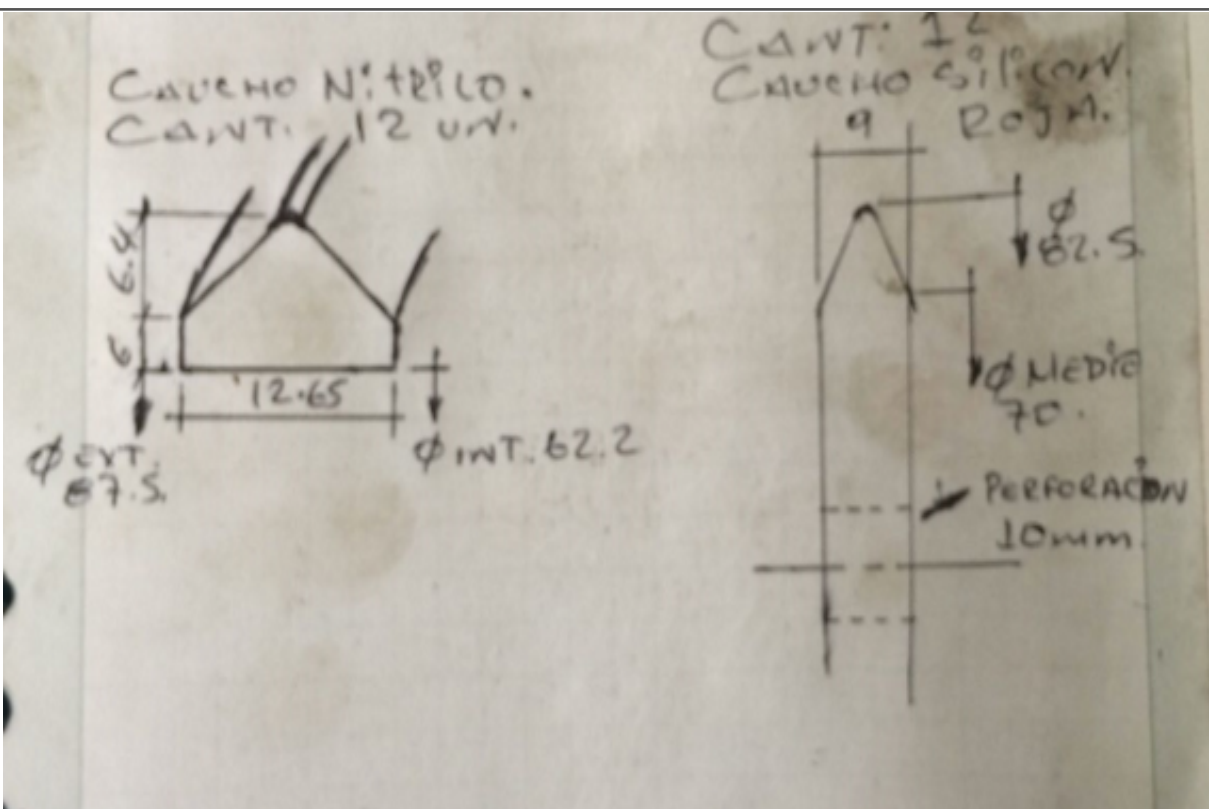 CAUCHO NITRILO.
CANT. 12 UN.
6.4
6
12.65
Ø EXT.
87.5.
Ø INT. 62.2
CANT: 12
CAUCHO SILICON.
ROJA.
9
Ø
82.5.
Ø MEDIO
70.
PERFORACION
10mm